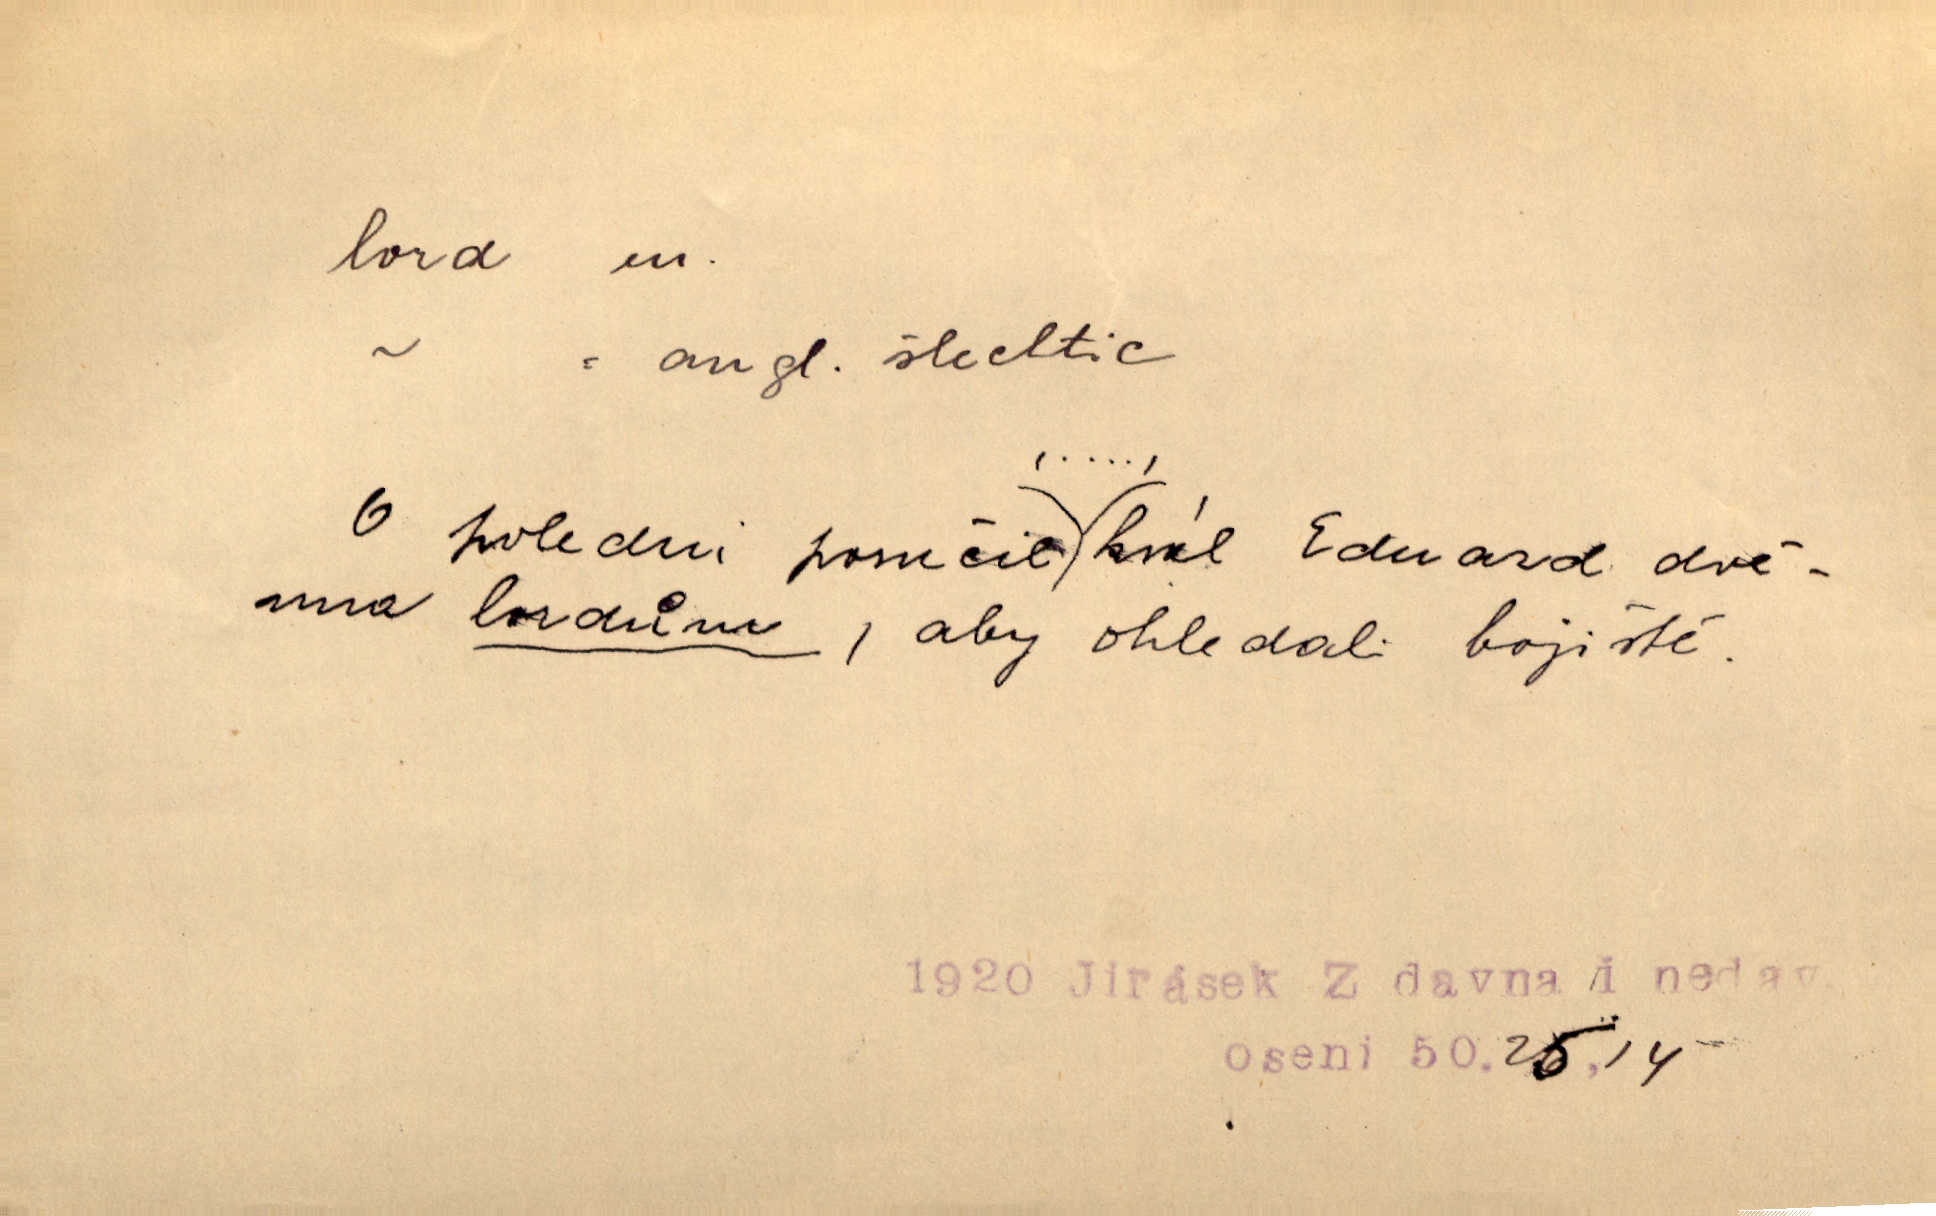 lord m.
~ = angl. šlechtic
(.....)
O poledni poručil)(král Eduard dvě-
ma lordům, aby ohledali bojiště.
1920 Jirásek Z davna i nedav
oseni 50.25,14